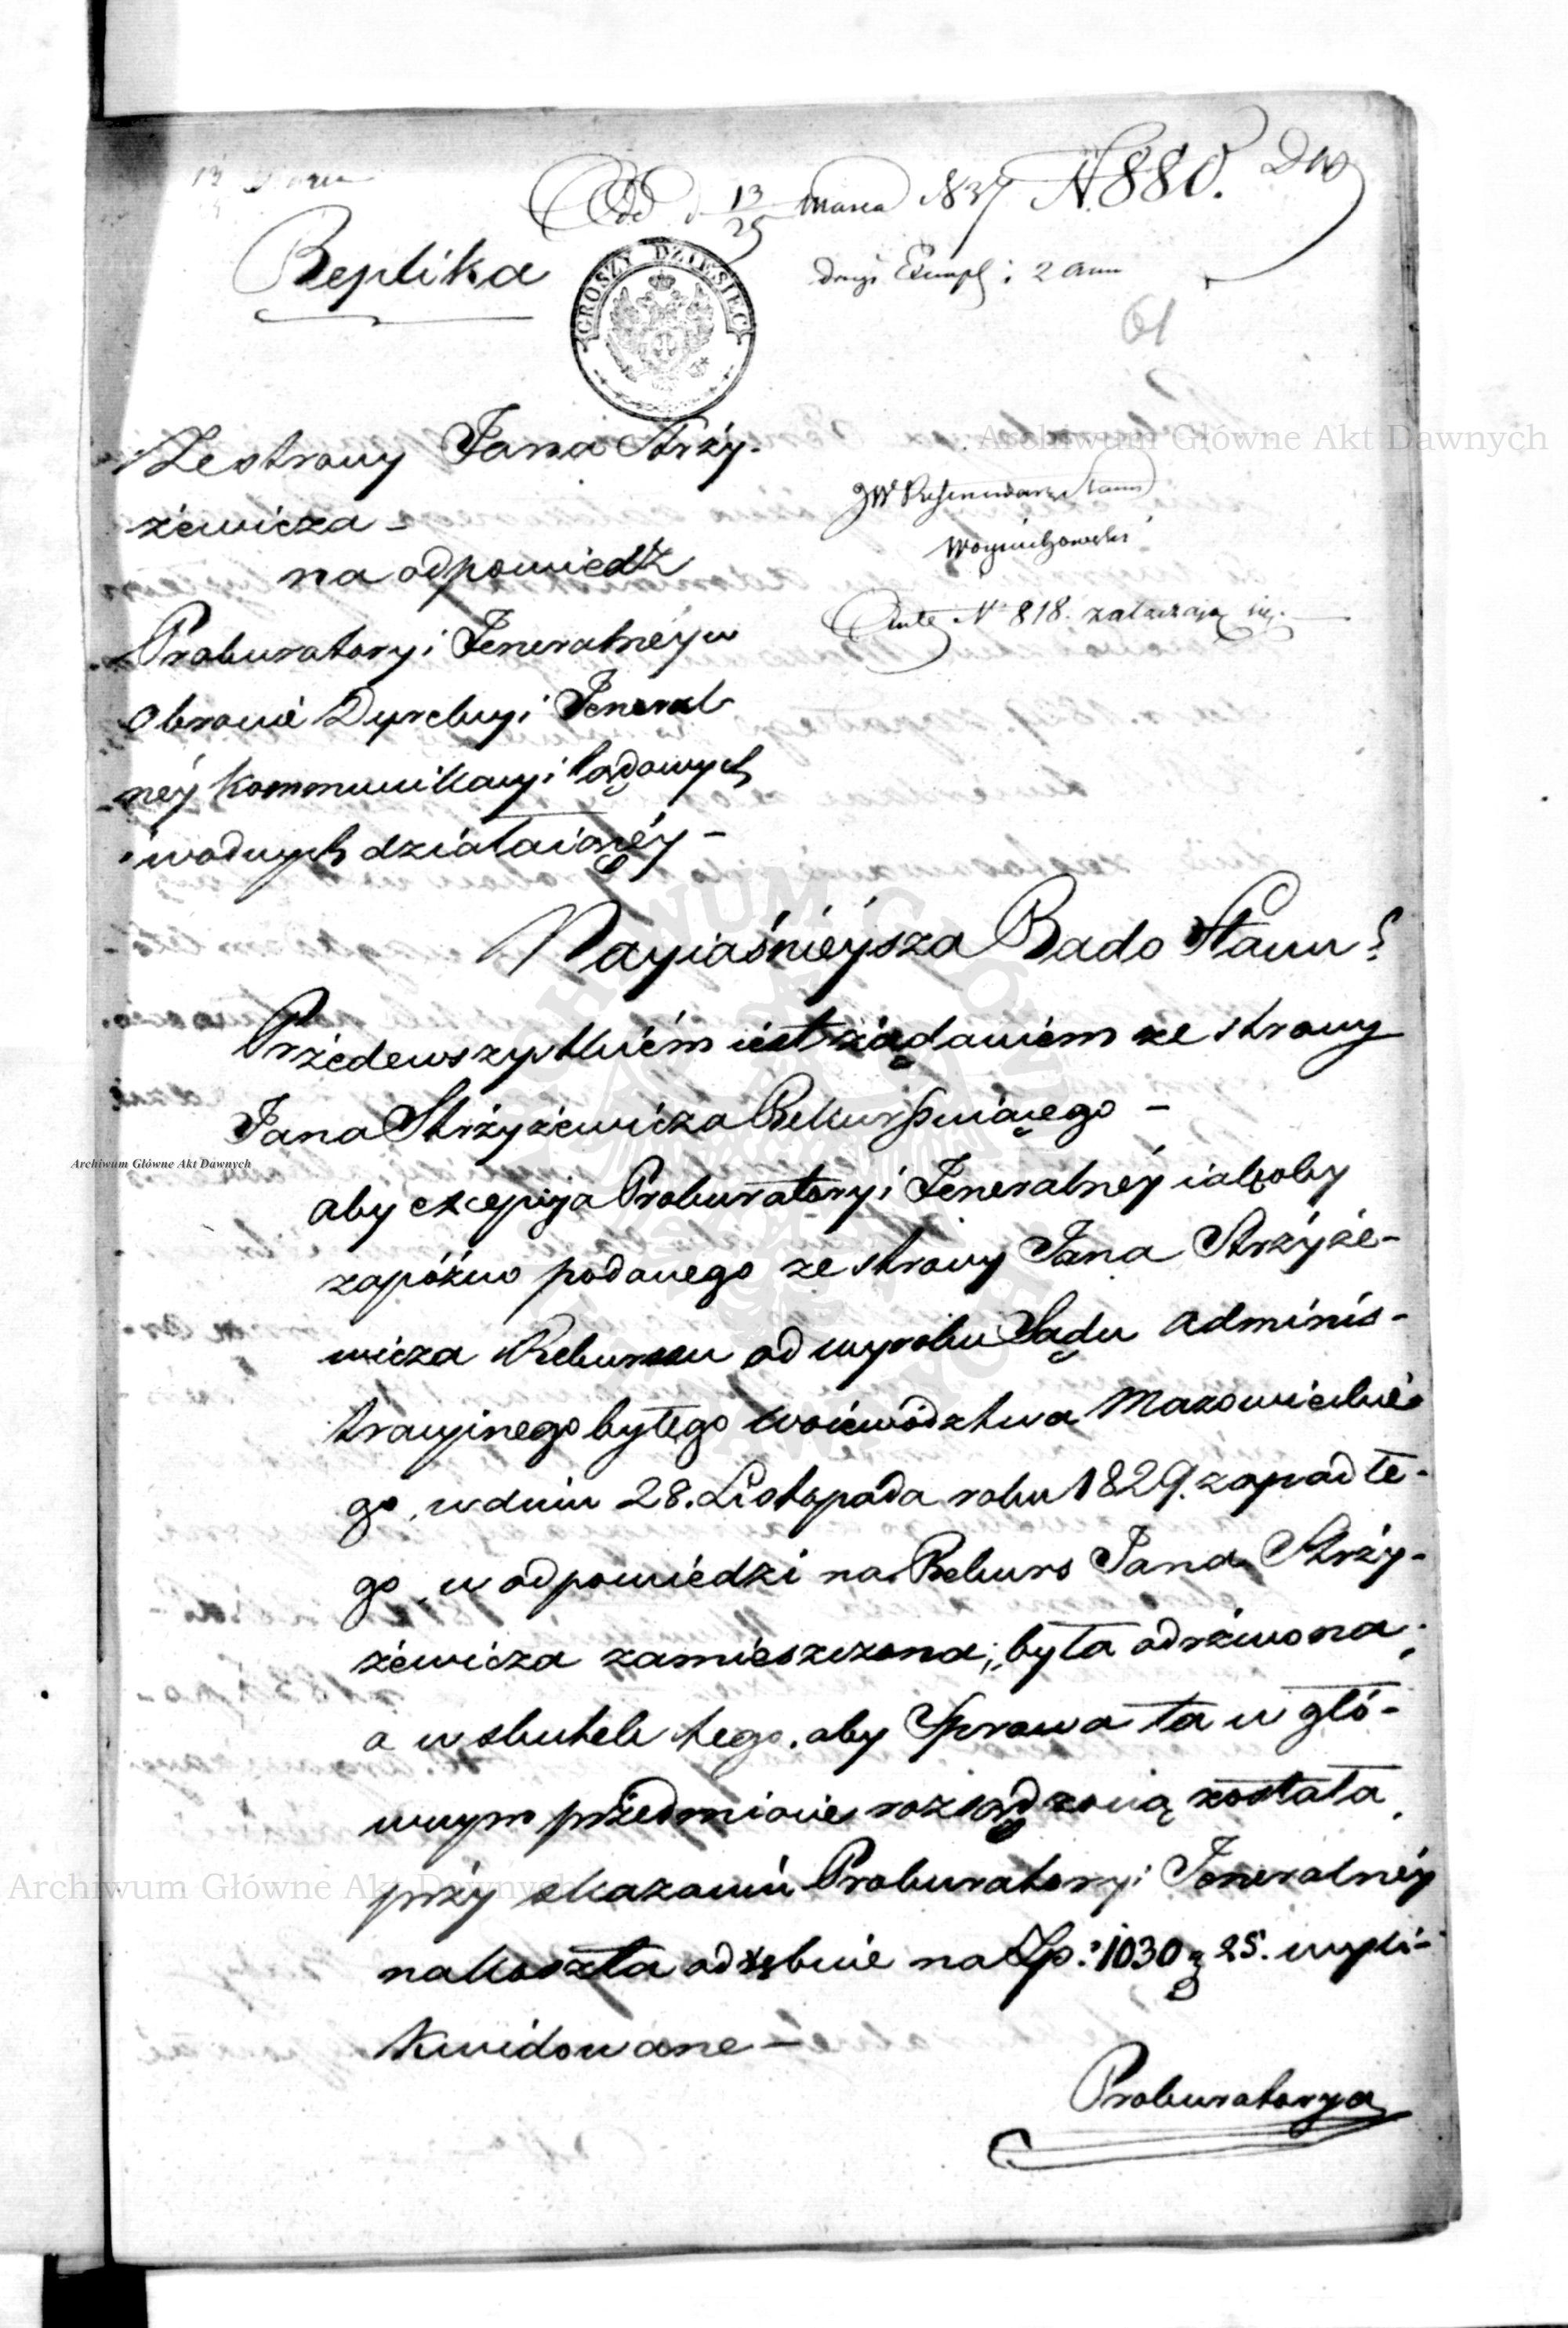 Odd d 13/25 Marca 1837 N. 880.
Replika
GROSZY DZIESIĘĆ
drugi Exempl:
61
Ze strony Jana Strzy-
żewicza -
na odpowiedź
Prokuratoryi Jeneralnéy w
obronie Dyrekcyi Jeneral
néy Kommunikacyi lądowych
i wodnych działaiącéy -
JW Referendarz Stanu
Woyciechowski
Akta N 818. załączaią się.
Nayiaśnieysza Rado Stanu!
Przedewszystkiém iest żądaniem ze strony
Jana Strzyżewicza Rekursuiącego -
aby excepcyja Prokuratoryi Jeneralnéy iakoby
zapóźno podanego ze strony Jana Strzyże-
wicza Rekursu od wyroku Sądu Adminis-
tracyjnego byłego Woiewództwa Mazowieckie
go, w dniu 28. Listopada roku 1829. zapadłe-
go, w odpowiedzi na Rekurs Jana Strzy-
żewicza zamieszczona, była odrzucona,
a w skutek tego, aby Sprawa ta w głó-
wnym przedmiocie rozsądzoną została,
przy skazaniu Prokuratoryi Jeneralnéy
na koszta oddzielnie na Zp: 1030 g 25. wyli-
kwidowane -
Prokuratorya
Archiwum Główne Akt Dawnych
Archiwum Główne Akt Dawnych
Archiwum Główne Akt Dawnych